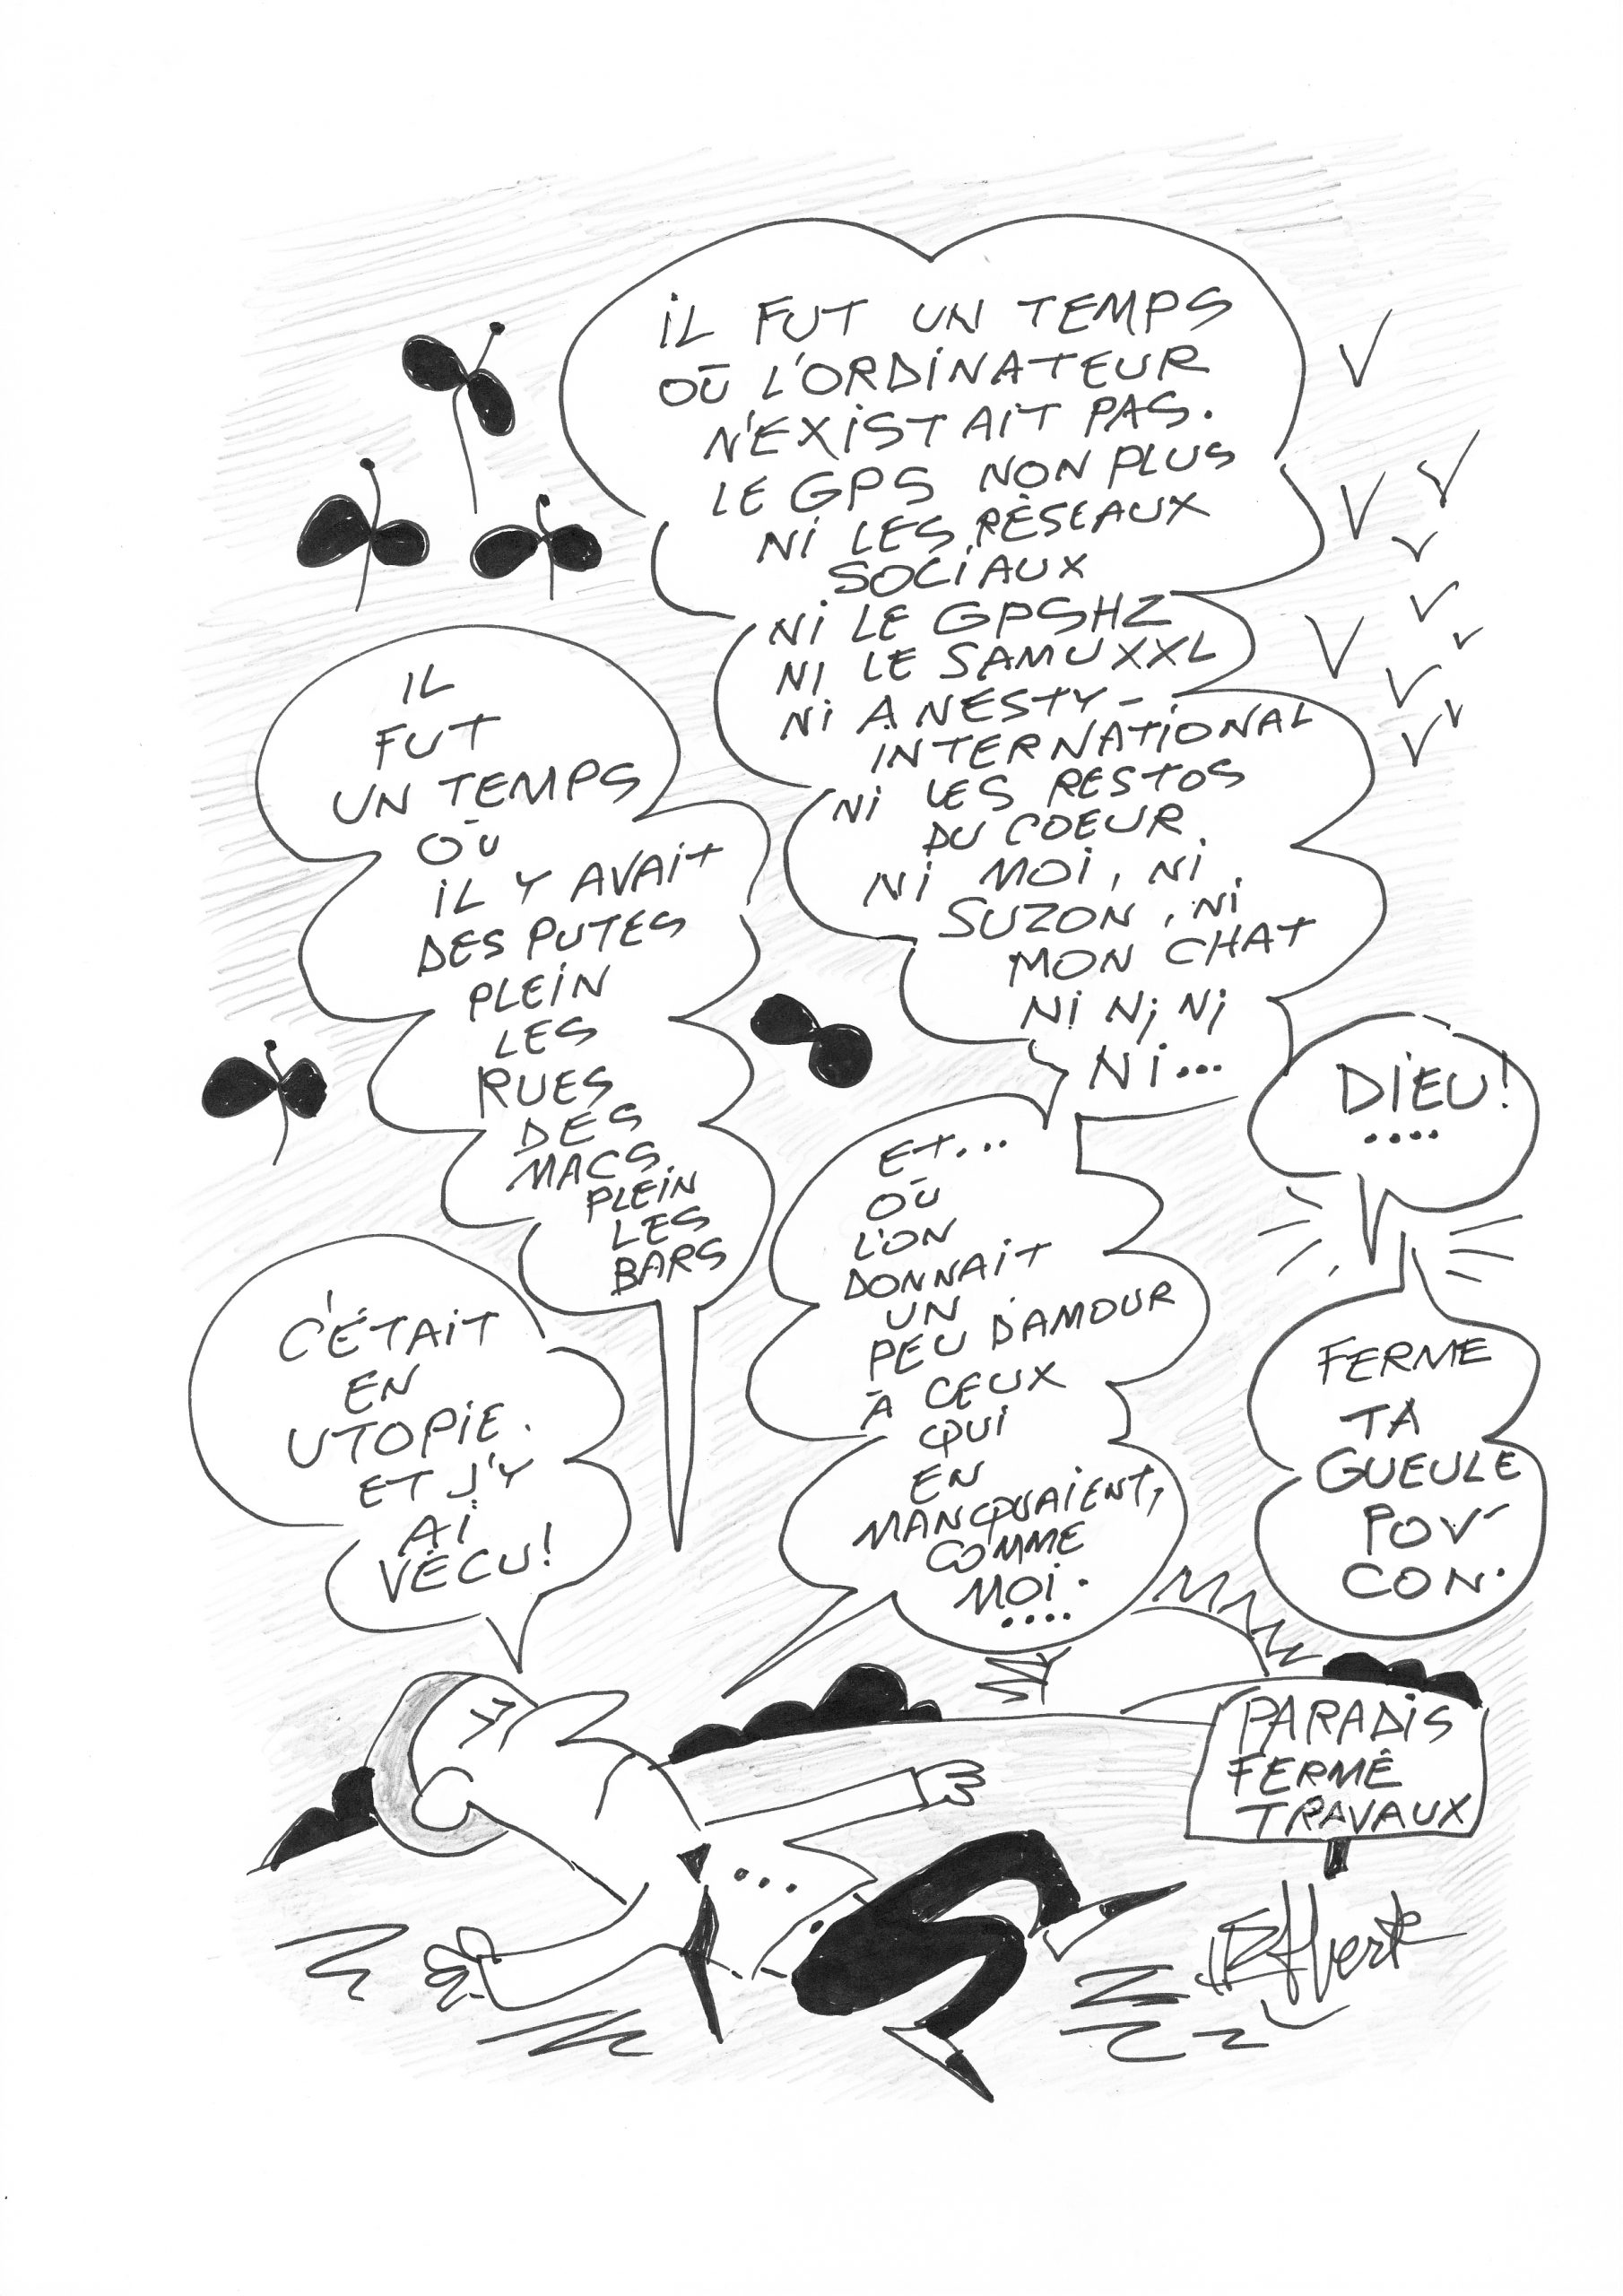 iL FUT UN TEMPS
OÙ L'ORDiNATEUR
N'EXiSTAiT PAS.
LE GPS NON PLUS
Ni LES RÉSEAUX
SOCiAUX
Ni LE GPSHZ
Ni LE SAMUXXL
Ni ANESTY-
iNTERNATiONAL
Ni LES RESTOS
DU COEUR
Ni MOi, Ni
SUZON, Ni
MON CHAT
Ni Ni Ni
Ni...
IL
FUT
UN TEMPS
OÙ
iL Y AVAiT
DES PUTES
PLEiN
LES
RUES
DES
MACS
PLEiN
LES
BARS
ET...
OÙ
L'ON
DONNAiT
UN
PEU D'AMOUR
À CEUX
QUi
EN
MANQUAiENT,
COMME
MOi.
....
DiEU!
....
FERME
TA
GUEULE
POV'
CON.
C'ÉTAiT
EN
UTOPiE.
ET J'Y
Ai
VÉCU!
PARADiS
FERMÉ
TRAVAUX